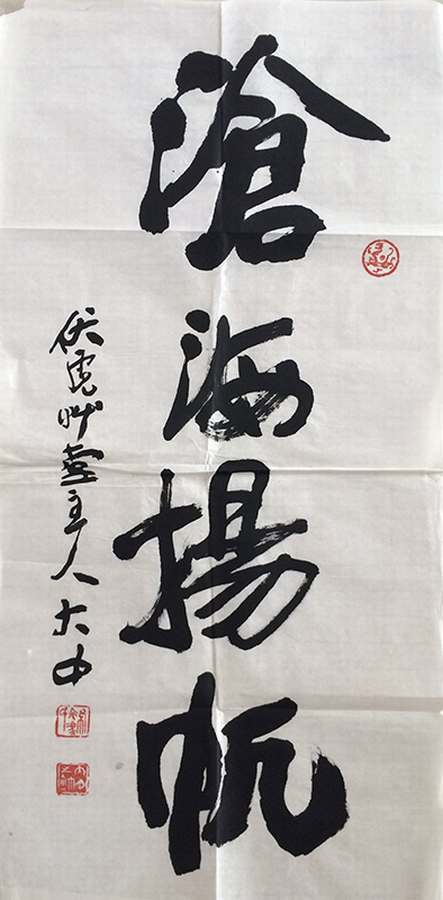 滄海揚帆
伏虎艸堂主人大中